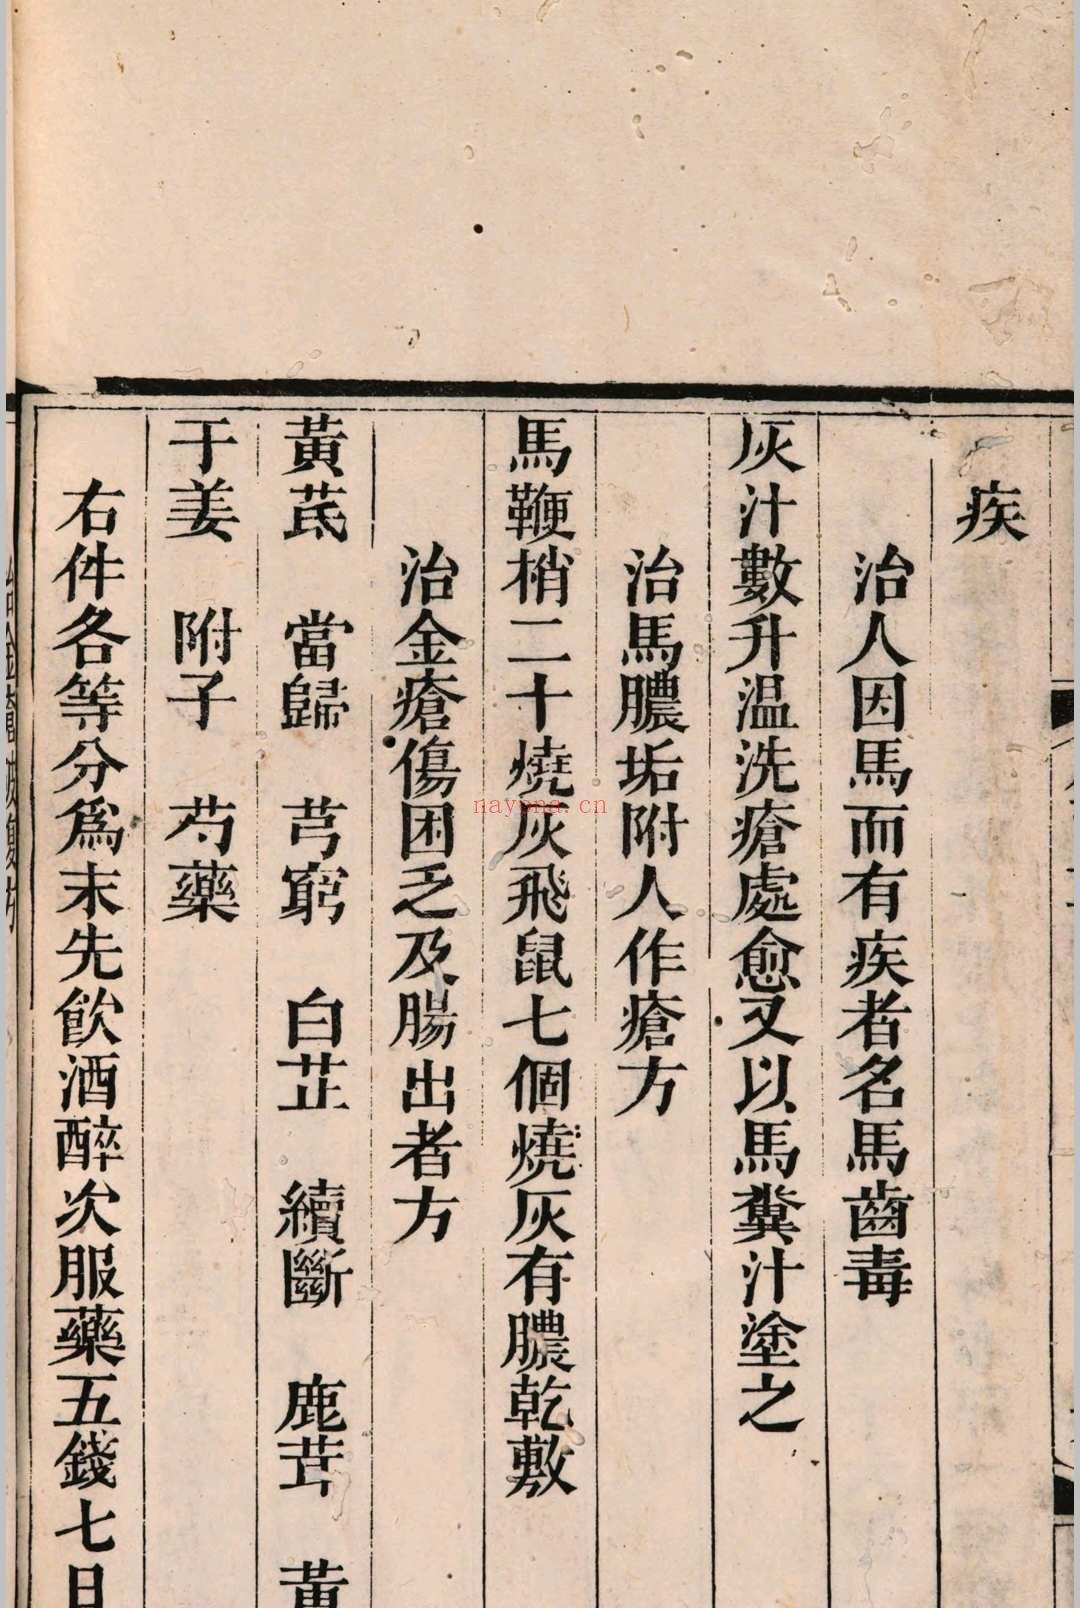 疾
治人因馬而有疾者名馬齒毒
灰汁數升温洗瘡處愈又以馬糞汁塗之
治馬膿垢附人作瘡方
馬鞭梢二十燒灰飛鼠七個燒灰有膿乾敷
治金瘡傷困乏及腸出者方
黃芪 當歸 芎窮 白芷 續斷 鹿茸 黃
于姜 附子 芍藥
右件各等分爲末先飲酒醉次服藥五錢七日
nayona.cn